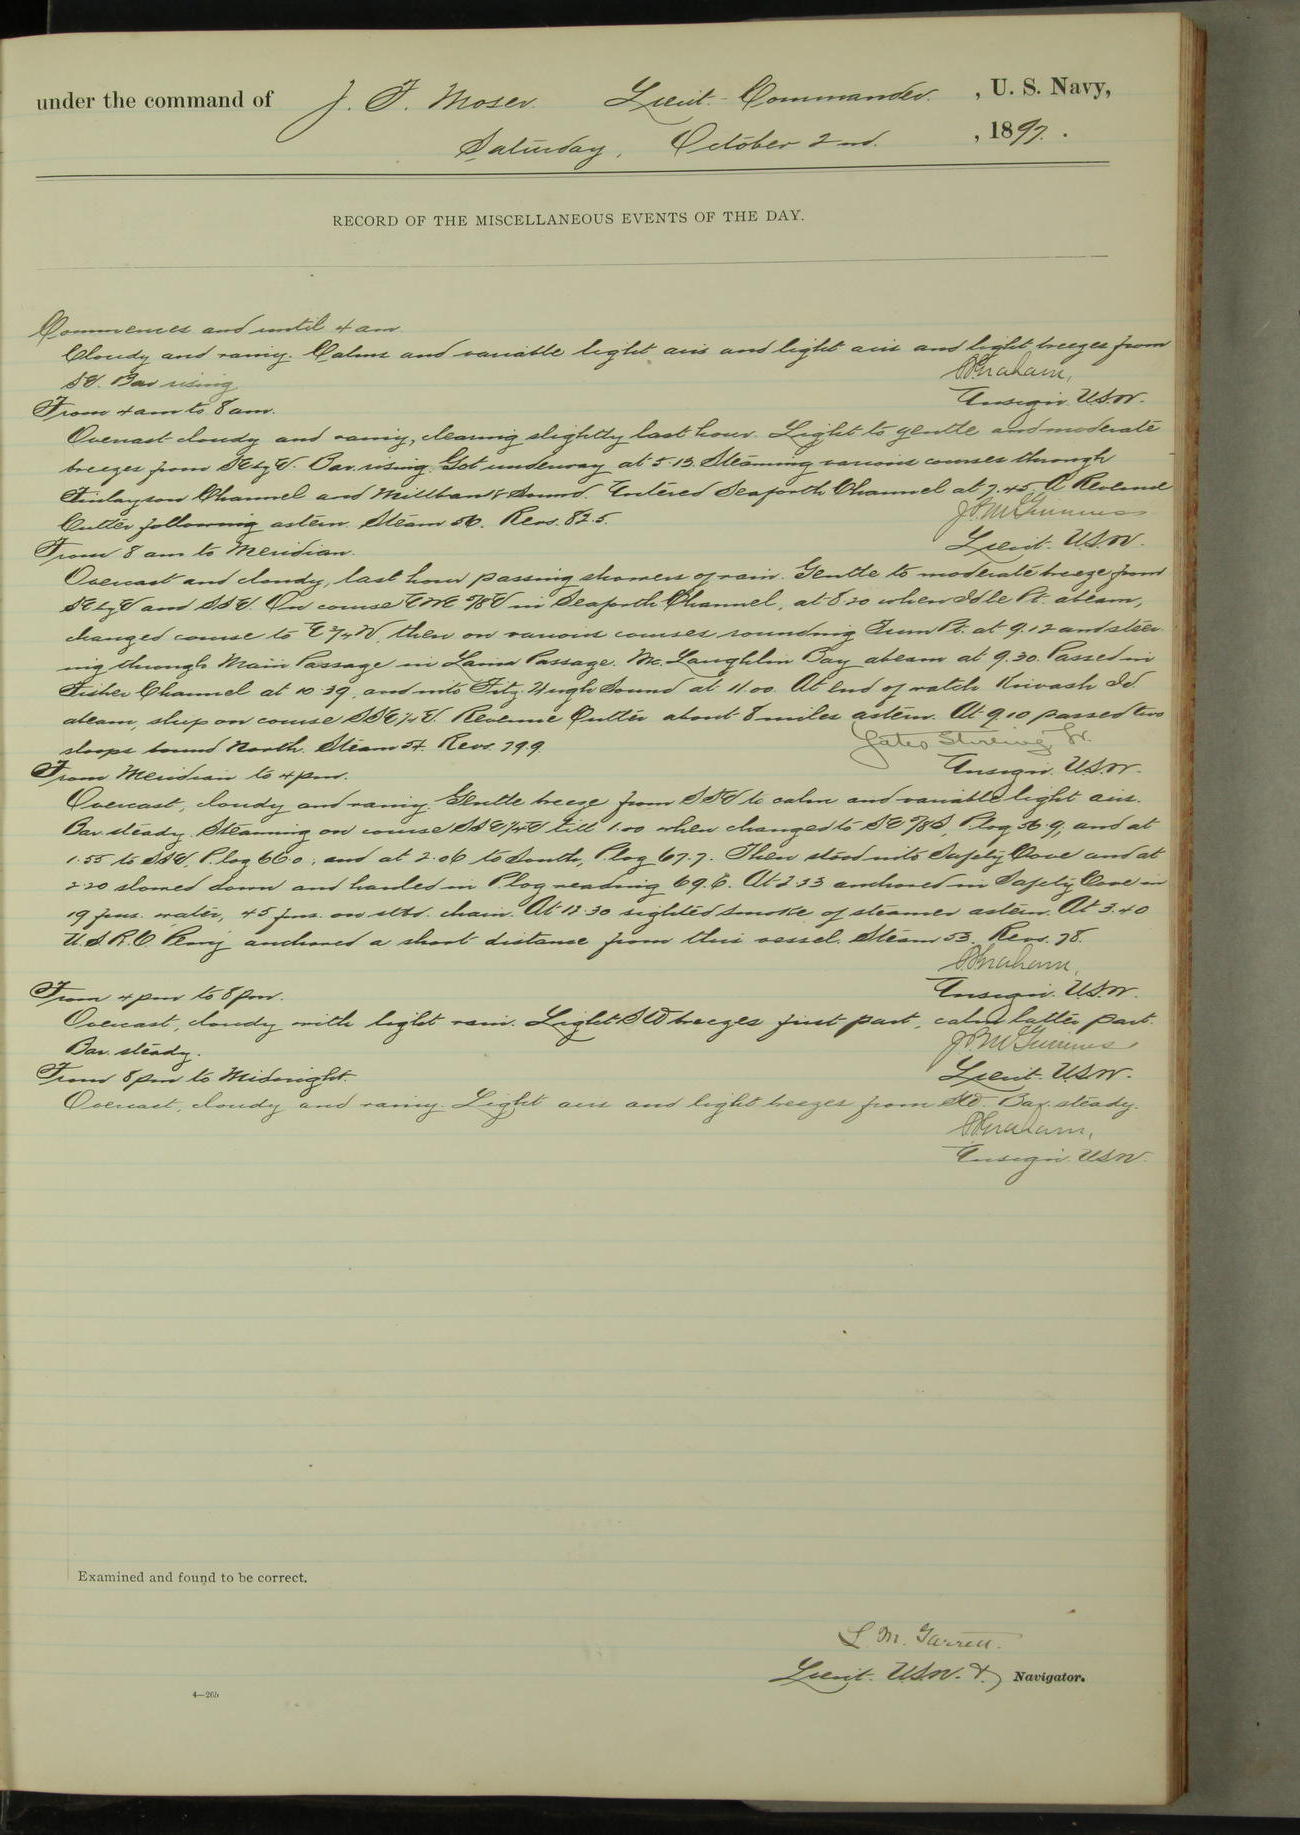 under the command of J. F. Moser Lieut.-Commander. , U. S. Navy,
Saturday, October 2nd. , 1897.
RECORD OF THE MISCELLANEOUS EVENTS OF THE DAY.
Commences and until 4 am
Cloudy and rainy. Calms and variable light airs and light airs and light breezes from
SE. Bar rising
Graham,
Ensign U.S.N.
From 4 am to 8 am.
Overcast cloudy and rainy, clearing slightly last hour. Light to gentle and moderate
breezes from SE by E. Bar. rising. Got underway at 5.13. Steaming various courses through
Finlayson Channel and Millbank Sound. Entered Seaforth Channel at 7.45. A Revenue
Cutter following astern. Steam 56. Revs. 82.5.
Lieut. U.S.N.
From 8 am to Meridian.
Overcast and cloudy, last hour passing showers of rain. Gentle to moderate breeze from
SE by E and SSE. On course ENE 7/8 E in Seaforth Channel, at 8.20 when Idle Pt. abeam,
changed course to E 3/4 N, then on various courses rounding Pt. at 9.12 and steer-
ing through Main Passage in Lama Passage. McLaughlin Bay abeam at 9.30. Passed in
Fisher Channel at 10.39, and into Fitz Hugh Sound at 11.00. At end of watch Id
abeam, ship on course SSE 1/4 E. Revenue Cutter about 8 miles astern. At 9.10 passed two
sloops bound North. Steam 54. Revs. 79.9.
Yates Stirling Jr.
Ensign U.S.N.
From Meridian to 4 pm.
Overcast, cloudy and rainy. Gentle breeze from SSE to calm and variable light airs.
Bar. steady. Steaming on course SSE 1/4 E till 1.00 when changed to SE 7/8 S, P. log 56.9, and at
1.55 to SSE, P. log 66.0, and at 2.06 to South, P. log 67.7. Then stood into Safety Cove and at
2.20 slowed down and hauled in P. log reading 69.6. At 2.33 anchored in Safety Cove in
19 fms. water, 45 fms. on stbd. chain. At 12.30 sighted smoke of steamer astern. At 3.40
U.S.R.C. Perry anchored a short distance from this vessel. Steam 53. Revs. 78.
Graham,
Ensign U.S.N.
From 4 pm to 8 pm.
Overcast, cloudy with light rain. Light breezes first part, calm latter part.
Bar. steady.
Lieut. U.S.N.
From 8 pm to Midnight.
Overcast, cloudy and rainy. Light airs and light breezes from Bar. steady.
Graham,
Ensign U.S.N.
Examined and found to be correct.
L. M. Garrett.
Lieut. U.S.N. &, Navigator.
4—265